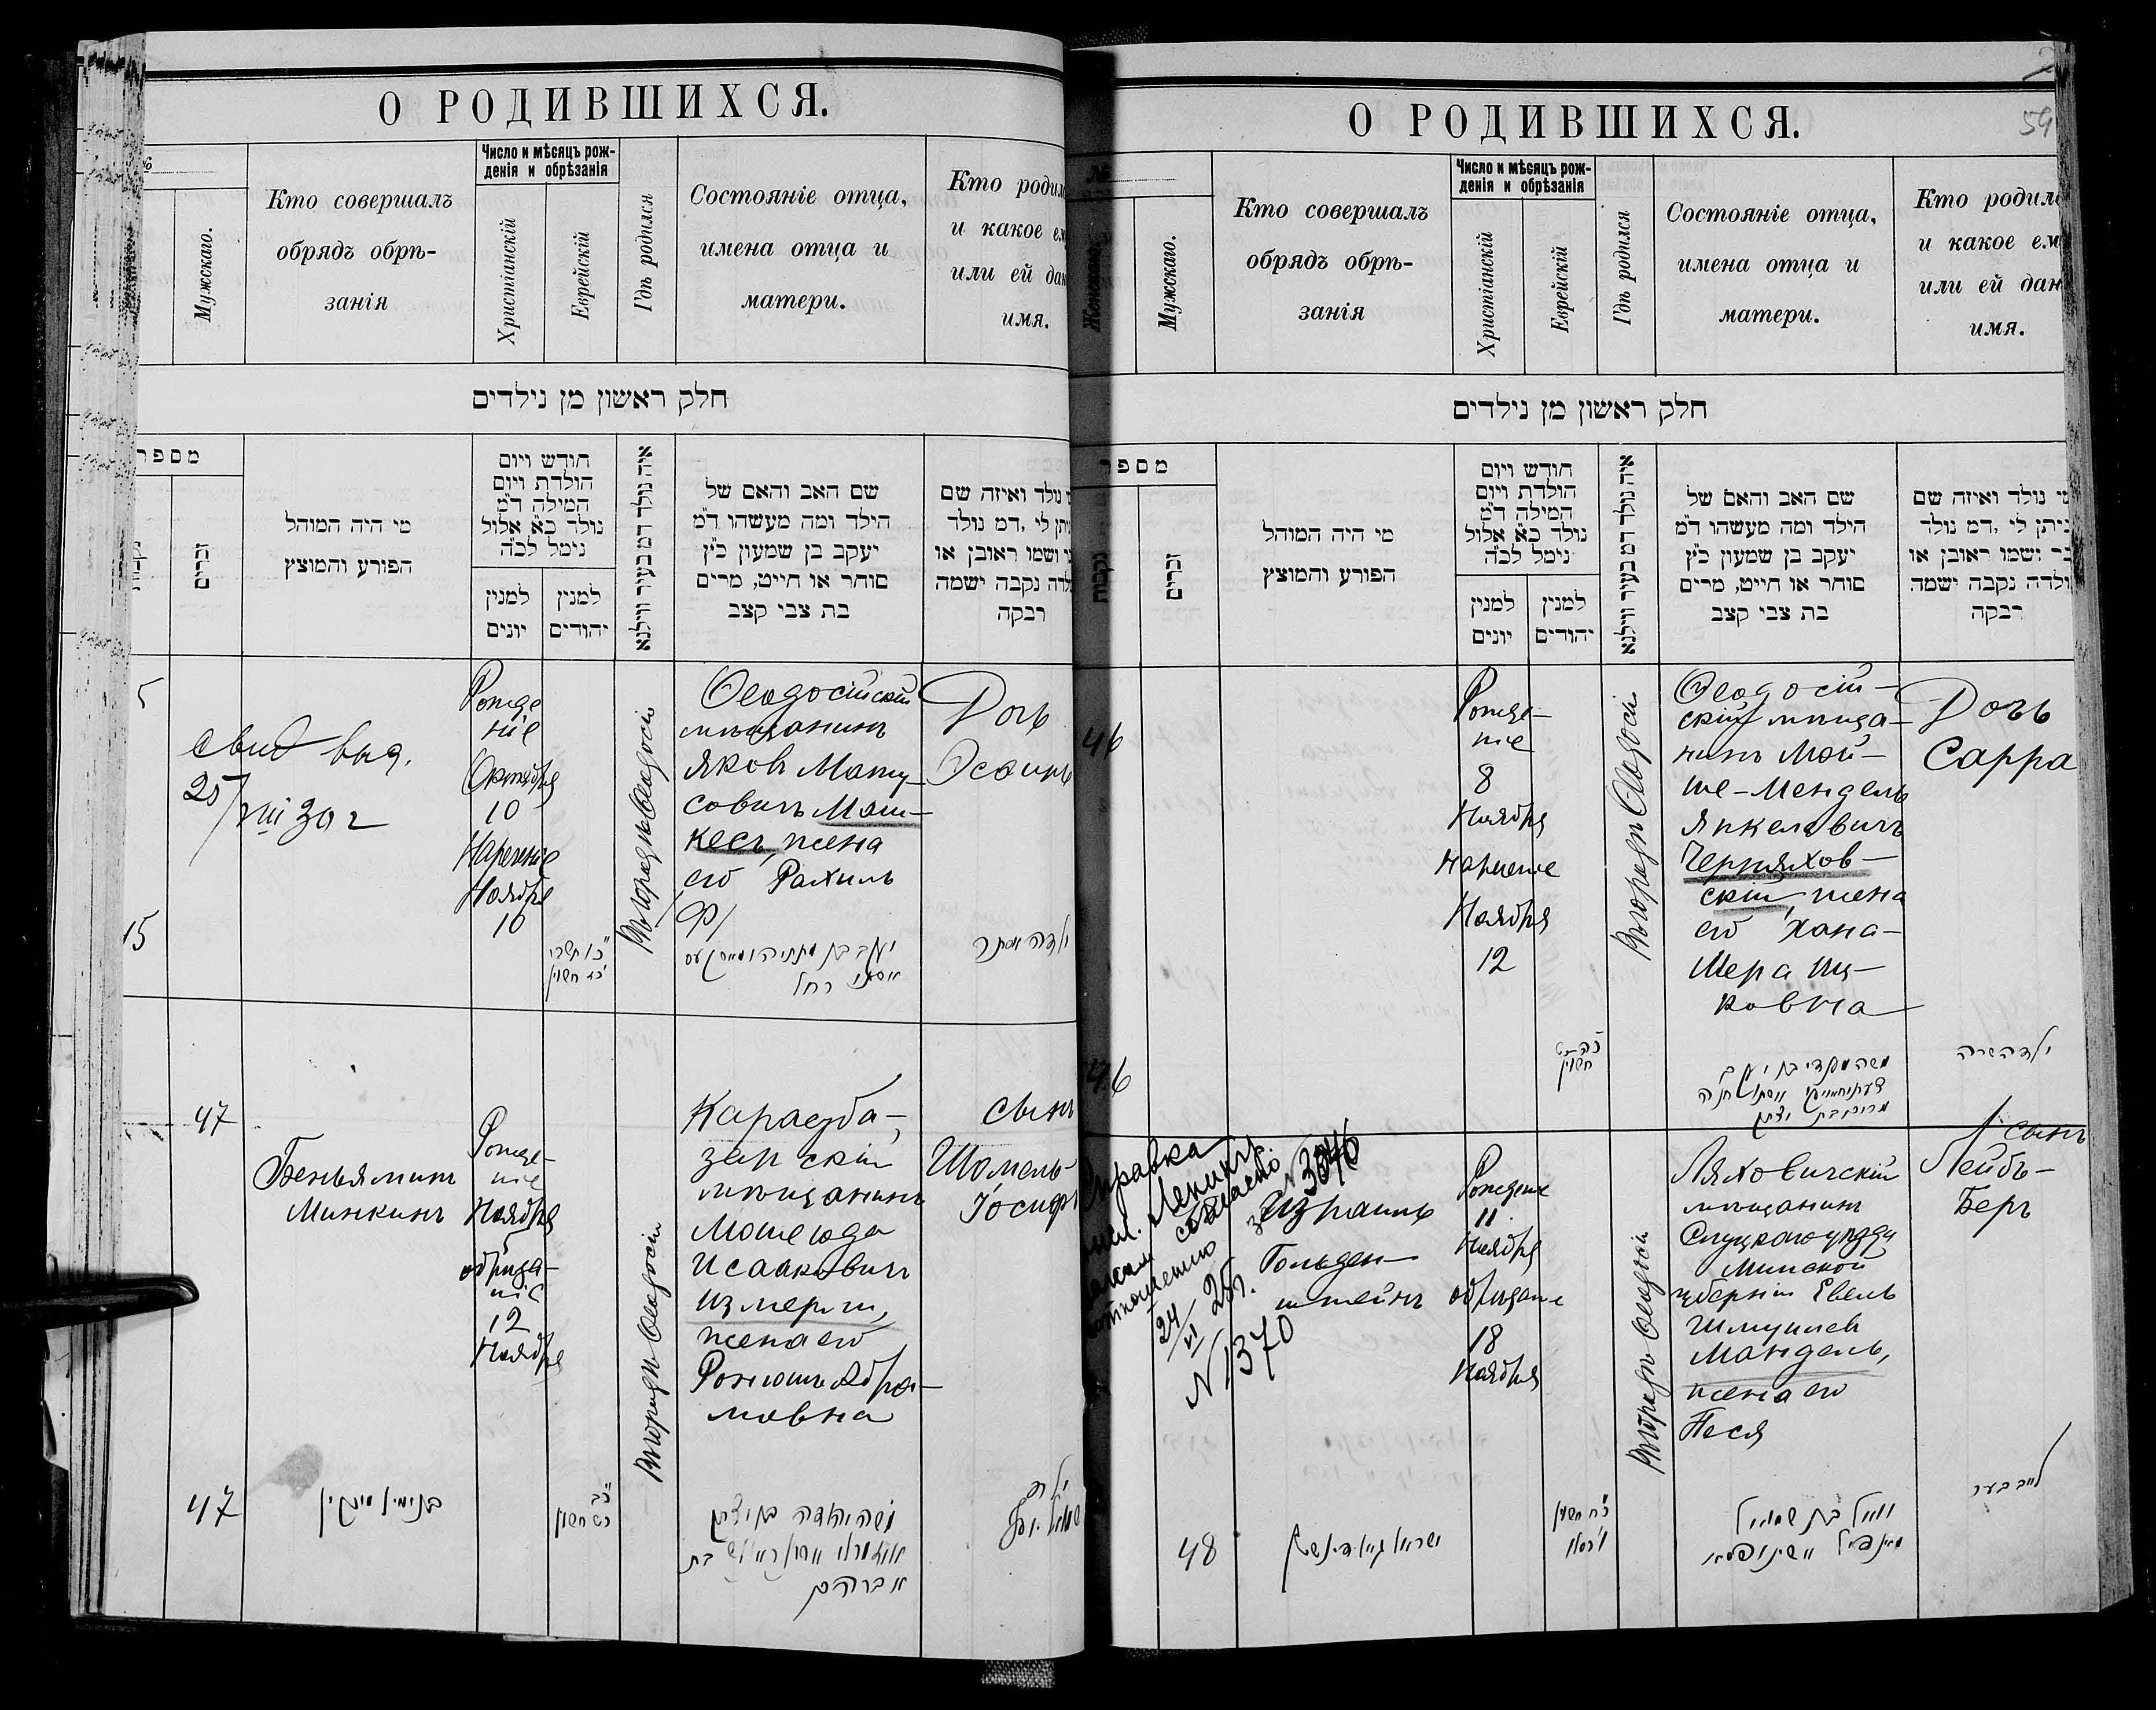 О РОДИВШИХСЯ.
Мужскаго.
Кто совершалъ
обрядъ обрѣ-
занія
Число и мѣсяцъ рож-
денія и обрѣзанія
Христіанскій
Еврейскій
Гдѣ родился
Состояніе отца,
имена отца и
матери.
Кто родил
и какое ем
или ей дан
имя.
חלק ראשון מן נילדים
מספר
זכרים
מי היה המוהל
הפורע והמוצץ
חודש ויום
הולדת ויום
המילה ד״מ
נולד כ״א אלול
נימל לכ״ה
למנין
יונים
למנין
יהודים
איה נולד דמ בעיר ווילנא
שם האב והאם של
הילד ומה מעשהו ד״מ
יעקב בן שמעון כ״ץ
סוחר או חייט, מרים
בת צבי קצב
נולד ואיזה שם
יתן לי, דמ נולד
י ושמו ראובן או
לדה נקבה ישמה
רבקה
5
свид выд.
25/VIII 30 г
Рожде
ніе
Октября
10
Нареченіе
Ноября
10
כ״ו תשרי
חשון
Въ городѣ Ѳеодосіи
Ѳеодосійскій
мѣщанинъ
Яковъ Мату-
совичъ Маш-
кесъ, жена
его Рахиль
רחל
Дочь
Эсѳирь
ילדה אסתר
15
47
Беньяминъ
Минкинъ
Рожде-
ніе
Ноября
5
обрѣза-
ніе
12
Ноября
Въ городѣ Ѳеодосіи
Карасуба-
зарскій
мѣщанинъ
Моше Юда
Исааковичъ
Измерли,
жена его
Рохиошъ Абра-
мовна
сынъ
Шомель-
Іосифъ
47
בנימין מינקין
חשון
משה יהודה בן יצחק
אברהם
О РОДИВШИХСЯ.
59
№
Женскаго.
Мужскаго.
Кто совершалъ
обрядъ обрѣ-
занія
Число и мѣсяцъ рож-
денія и обрѣзанія
Христіанскій
Еврейскій
Гдѣ родился
Состояніе отца,
имена отца и
матери.
Кто родил
и какое ем
или ей дан
имя.
חלק ראשון מן נילדים
מספר
נקבות
זכרים
מי היה המוהל
הפורע והמוצץ
חודש ויום
הולדת ויום
המילה ד״מ
נולד כ״א אלול
נימל לכ״ה
למנין
יונים
למנין
יהודים
איה נולד דמ בעיר ווילנא
שם האב והאם של
הילד ומה מעשהו ד״מ
יעקב בן שמעון כ״ץ
סוחר או חייט, מרים
בת צבי קצב
י נולד ואיזה שם
ניתן לי, דמ נולד
כר ושמו ראובן או
ולדה נקבה ישמה
רבקה
46
Рожде-
ніе
8
Ноября
нареченіе
Ноября
12
חשון
Въ городѣ Ѳеодосіи
Ѳеодосій-
скій мѣща-
нинъ Мой-
ше-Мендель
Янкелевичъ
Черняхов-
скій, жена
его Хана-
Мера Иц-
ковна
Дочь
Сарра
ילדה שרה
46
Справка
№ 3046
24/VI 25 г.
№ 1370
Израиль
Гольден-
штейнъ
Рожденіе
11
Ноября
обрѣзаніе
18
Ноября
Въ городѣ Ѳеодосіи
Ляховичскій
мѣщанинъ
Слуцкаго уѣзда
Минской
губерніи Евель
Шмуилев
Мандель,
жена его
Песя
сынъ
Лейбъ-
Беръ
לייב בער
48
ישראל גאלדינשטיין
חשון
כסלו
בן שמואל